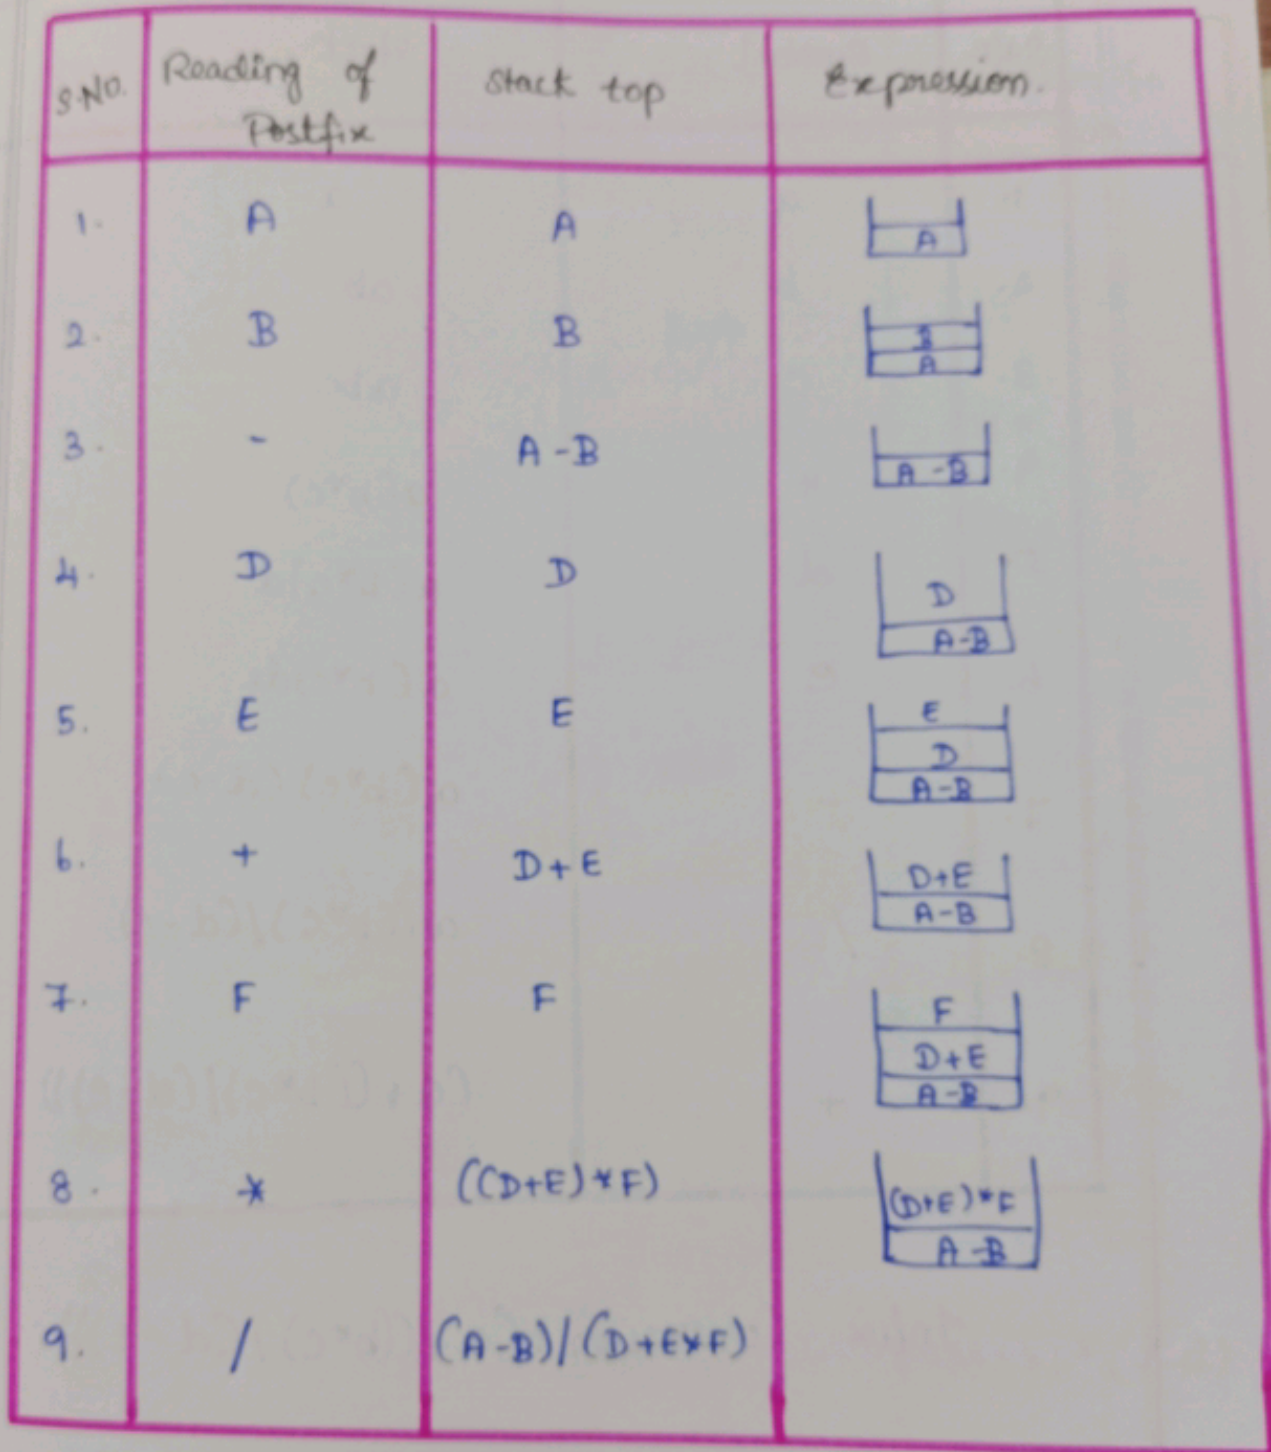 S.NO. Reading of Postfix Stack top Expression.
1. A A A
2. B B B
A
3. - A-B A-B
4. D D D
A-B
5. E E E
D
A-B
6. + D+E D+E
A-B
7. F F F
D+E
A-B
8. * ((D+E)*F) (D+E)*F
A-B
9. / (A-B)/(D+E*F)